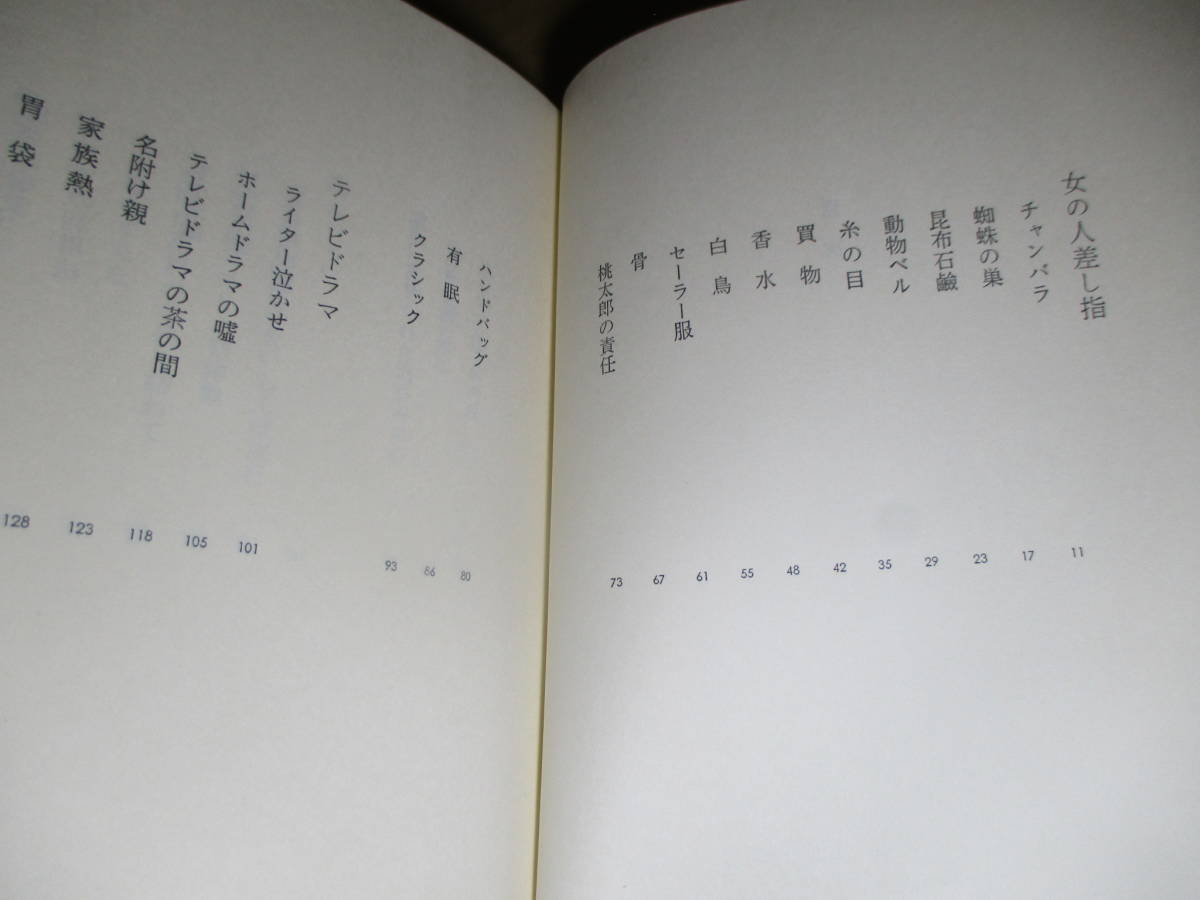 女の人差し指
チャンバラ 11
蜘蛛の巣 17
昆布石鹼 23
動物ベル 29
糸の目 35
買物 42
香水 48
白鳥 55
セーラー服 61
骨 67
桃太郎の責任 73
ハンドバッグ 80
有眠 86
クラシック 93
テレビドラマ
ライター泣かせ 101
ホームドラマの嘘 105
テレビドラマの茶の間 118
名附け親 123
家族熱 128
胃袋